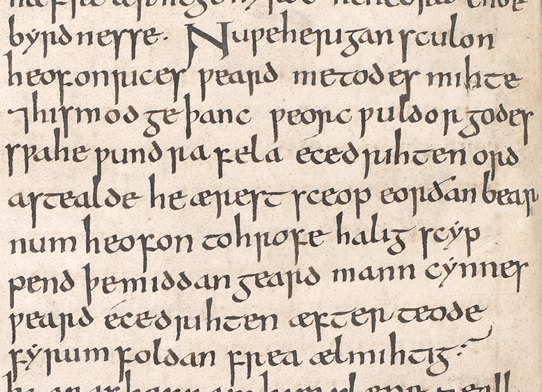 byrdnesse. Nu ƿe herigan sculon
heofonrices ƿeard metodes mihte
⁊ his modgeþanc ƿeorc ƿuldorgodes
sƿa he ƿundra fela ecedrihten ord
astealde he ærest sceop eorðan bear
num heofon to hrofe halig scyp
pend þe middangeard mann cynnes
ƿeard ece drihten æfter teode
fyrum foldan frea ælmihtig.